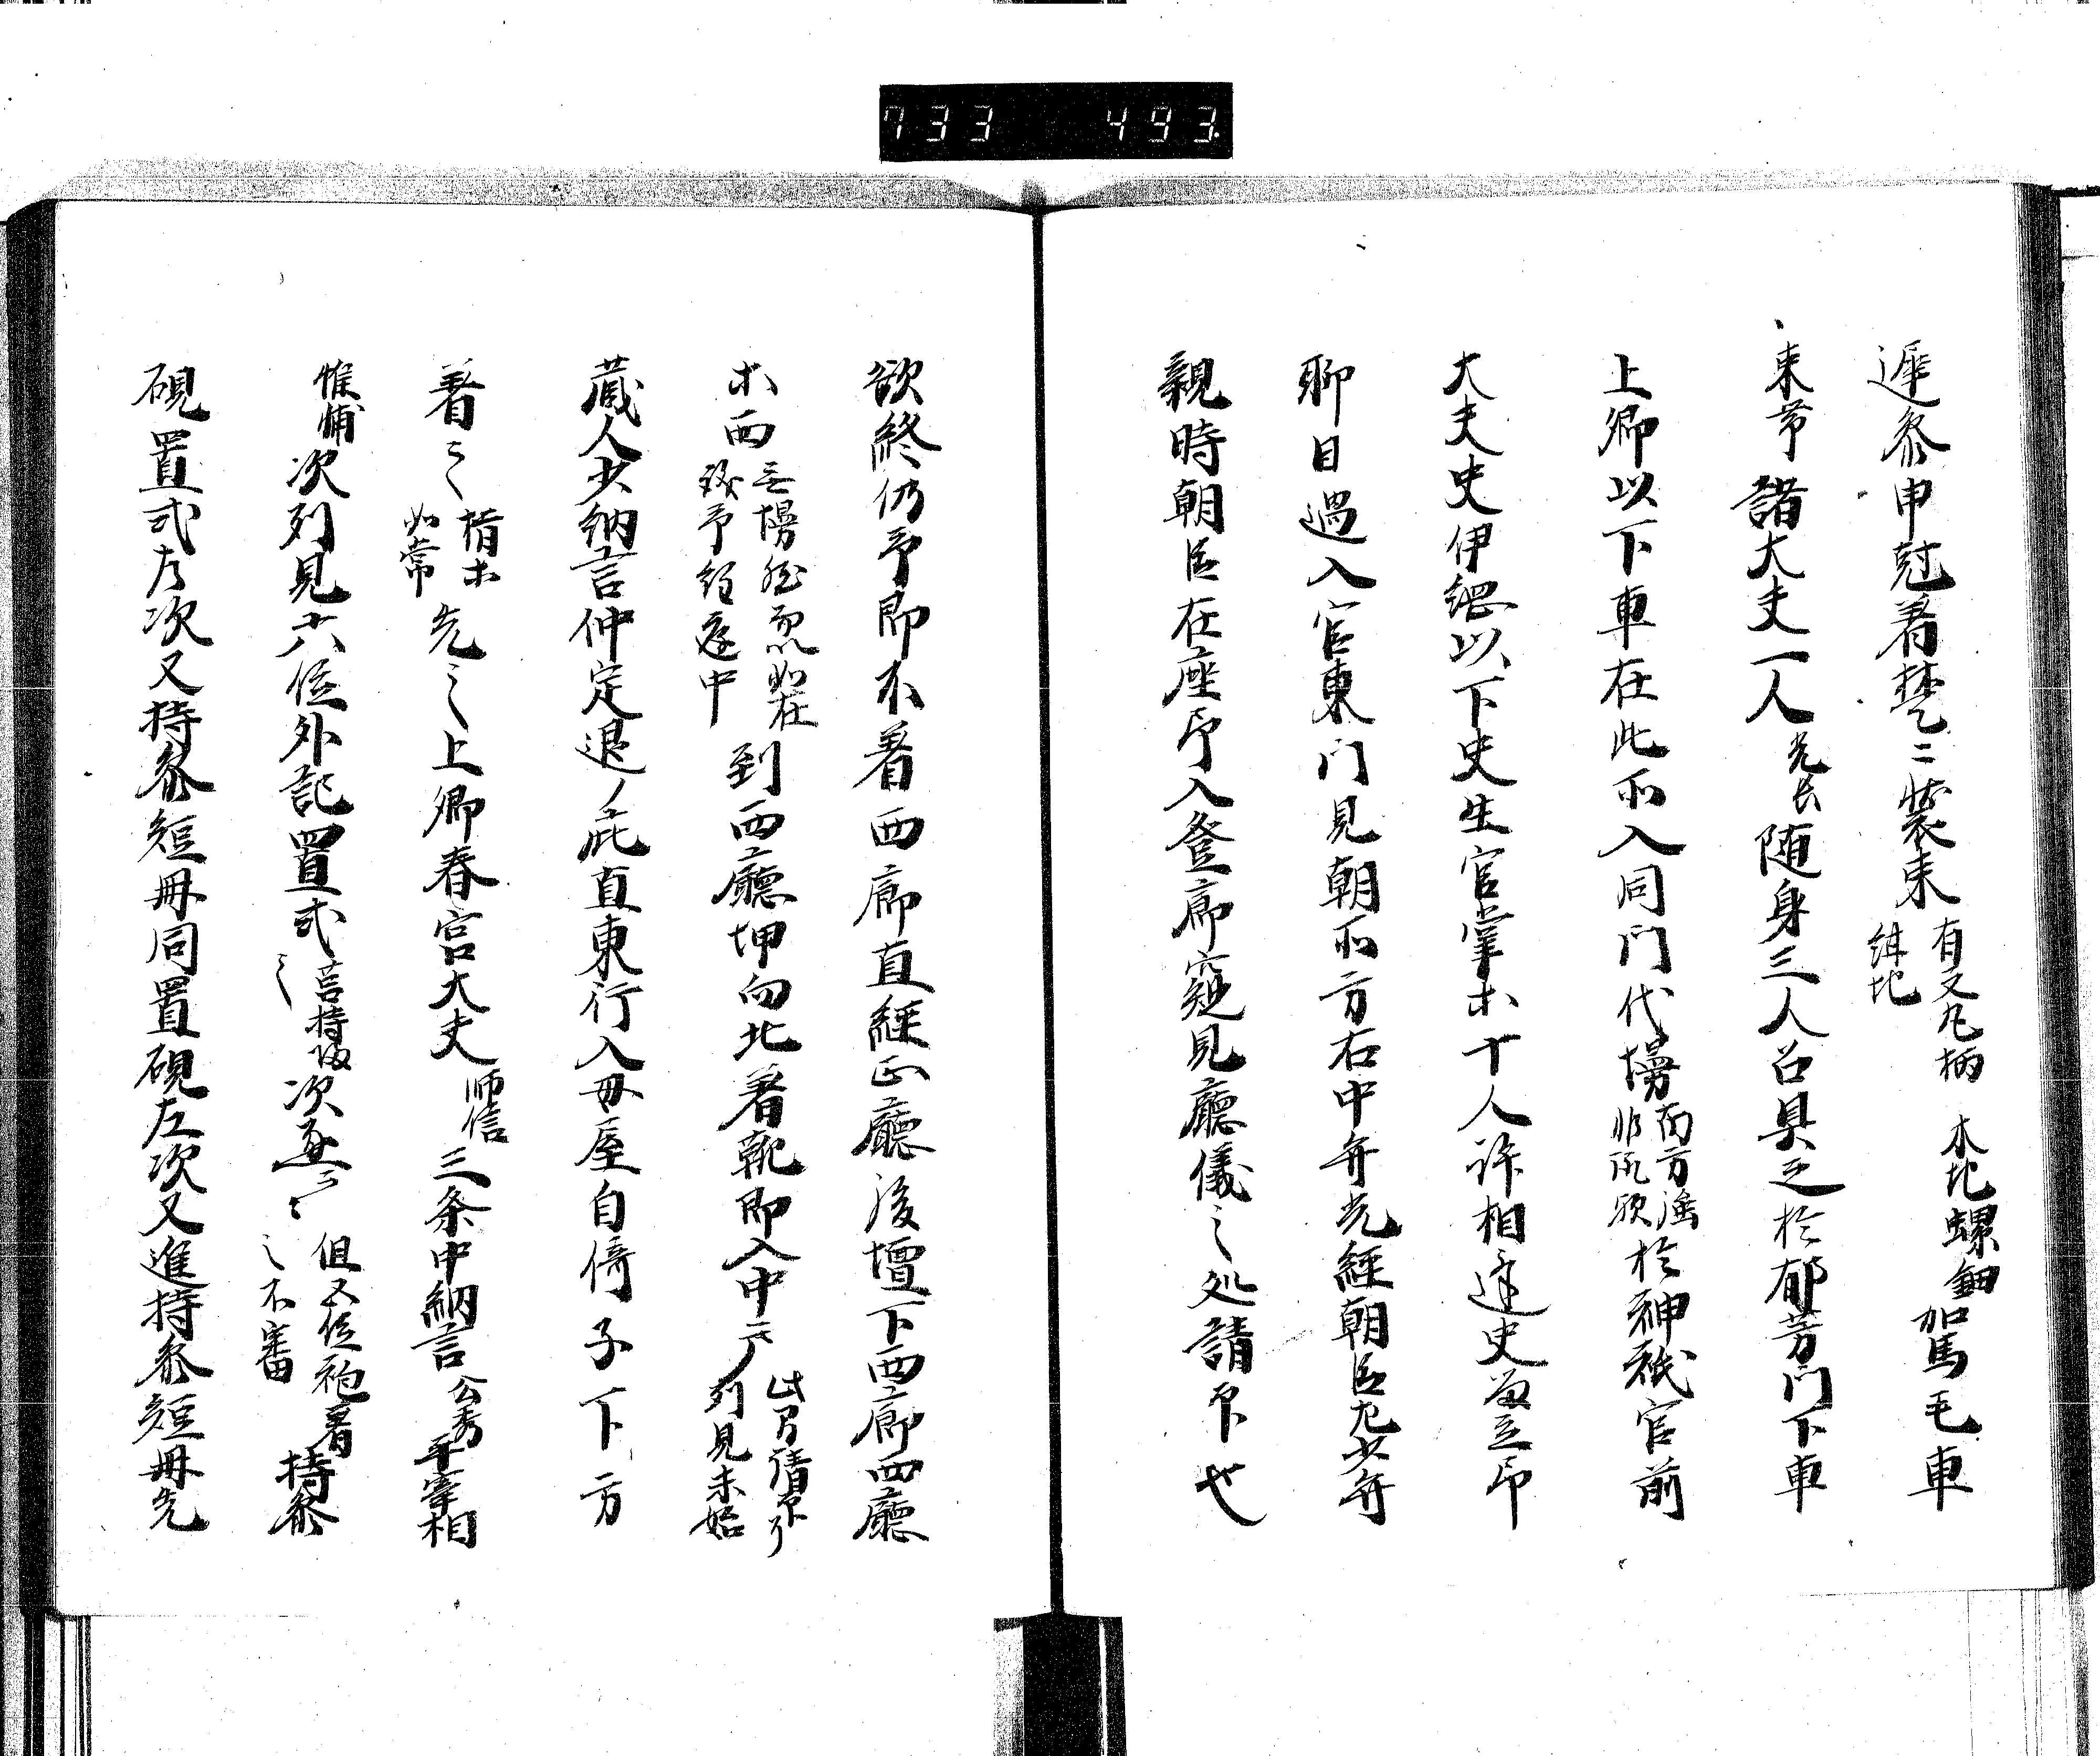 733 493
遅参申剋着楚々装束有文丸柄 木地螺鈿 紺地 駕毛車
、車等諸大夫一人光長随身三人召具之於郁芳門下車
上卿以下車在此所入同門代幔両方 於神祇官前
大夫史伊綱以下史生官掌ホ十人許相逢史
聊目過入官東門見朝所方右中弁光経朝臣左少弁
親時朝臣在座即入登廊窺見廳儀之処請印也
欲終仍予即不着西廊直経正廳後壇下西廊西廳
ホ西 到西廳坤向北着靴即入中戸 列見未始
蔵人少納言仲定退ノ庇直東行入母屋自倚子下方
着之揖ホ如常先之上卿春宮大夫師信三条中納言公秀平宰相
惟輔次列見六位外記置式筥 次 但五位袍着之不審持参
硯置式右次又持参短冊同置硯左次又進持参短冊先